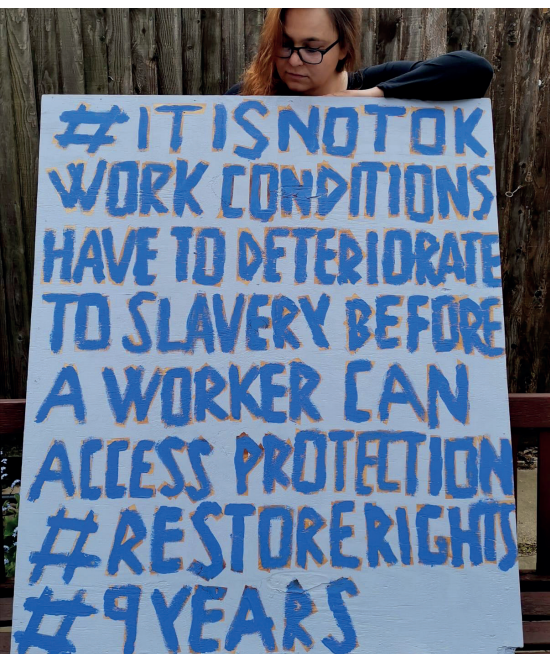 #ITISNOTOK
WORK CONDITIONS
HAVE TO DETERIORATE
TO SLAVERY BEFORE
A WORKER CAN
ACCESS PROTECTION
#RESTORERIGHTS
#9YEARS